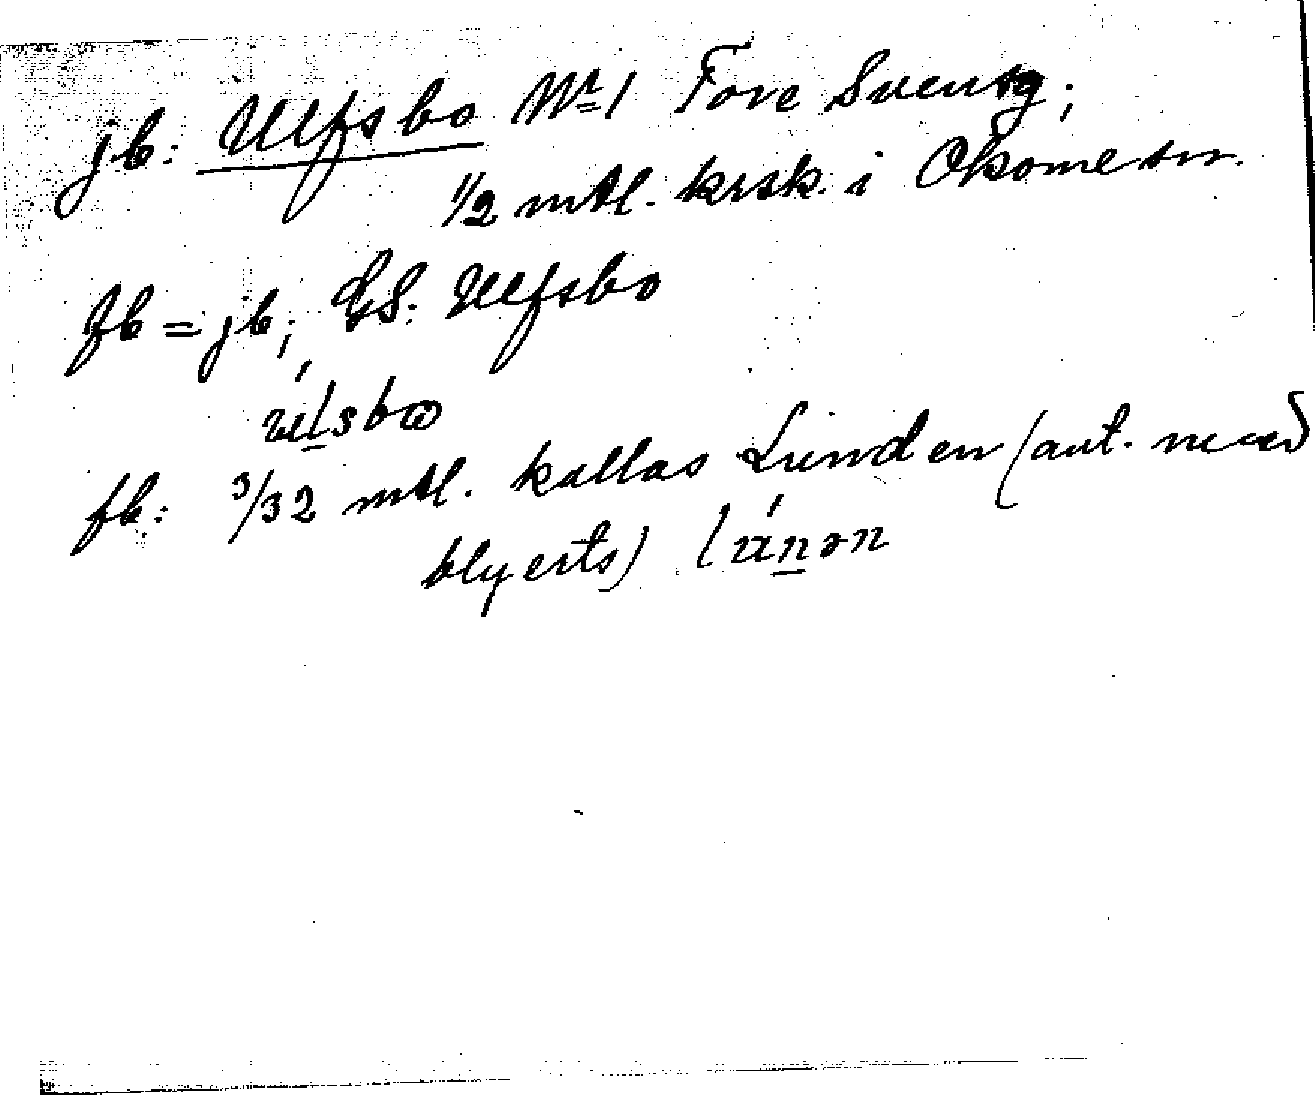 jb: Ulfsbo № 1 Tove Svensg;
1/2 mtl. krsk. i Okome sn.
fb = jb; GS: Ulfsbo
fb: 3/32 mtl. kallas Lunden (ant. med
blyerts)